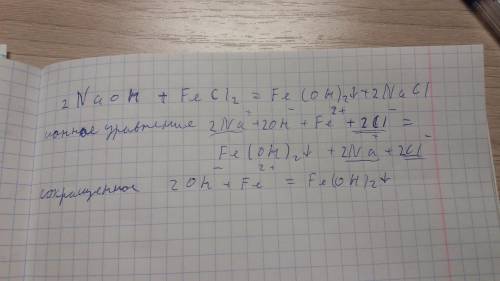 2NaOH + FeCl₂ = Fe(OH)₂↓+2NaCl
ионное уравнение 2Na⁺+2OH⁻+Fe²⁺+2Cl⁻=
Fe(OH)₂↓ +2Na⁺+2Cl⁻
сокращенное 2OH⁻+Fe²⁺ = Fe(OH)₂↓